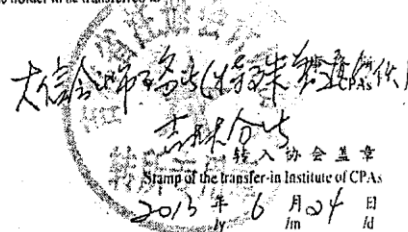 holder to be transferred to
大信会计师事务所(特殊普通合伙)
CPAs
吉林分所
转入协会盖章
Stamp of the transfer-in Institute of CPAs
2013 年 6 月 24 日
/y /m /d